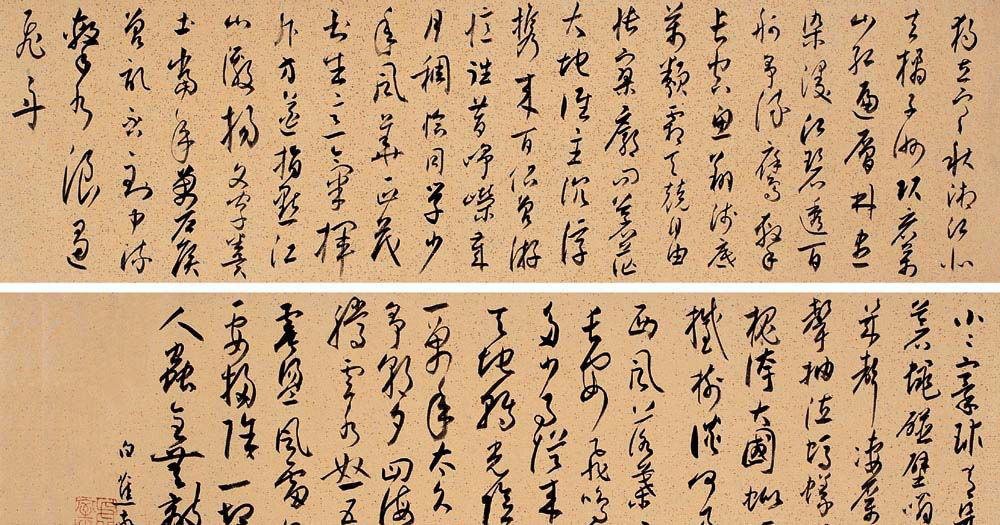 獨立寒秋湘江北
去橘子洲頭看萬
山紅遍層林盡
染漫江碧透百
舸爭流鷹擊
長空魚翔淺底
萬類霜天競自由
悵寥廓問蒼茫
大地誰主沉浮
携來百侶曾游
憶往昔崢嶸歲
月稠恰同學少
年風華正茂
書生意氣揮
斥方遒指點江
山激揚文字糞
土當年萬戶侯
曾記否到中流
擊水浪遏
飛舟
小小寰球有
蒼蠅碰壁嗡
凄厲
聲抽泣螞蟻
槐誇大國蚍
撼樹談何易
西風落葉
長安飛鳴
多少事從來
天地轉光陰
一萬年太久
爭朝夕四海
騰雲水怒五
震蕩風雷
要掃除一切
人蟲全無敵
白蕉